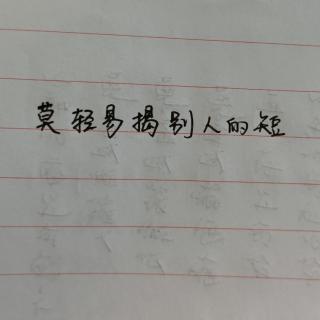 莫轻易揭别人的短